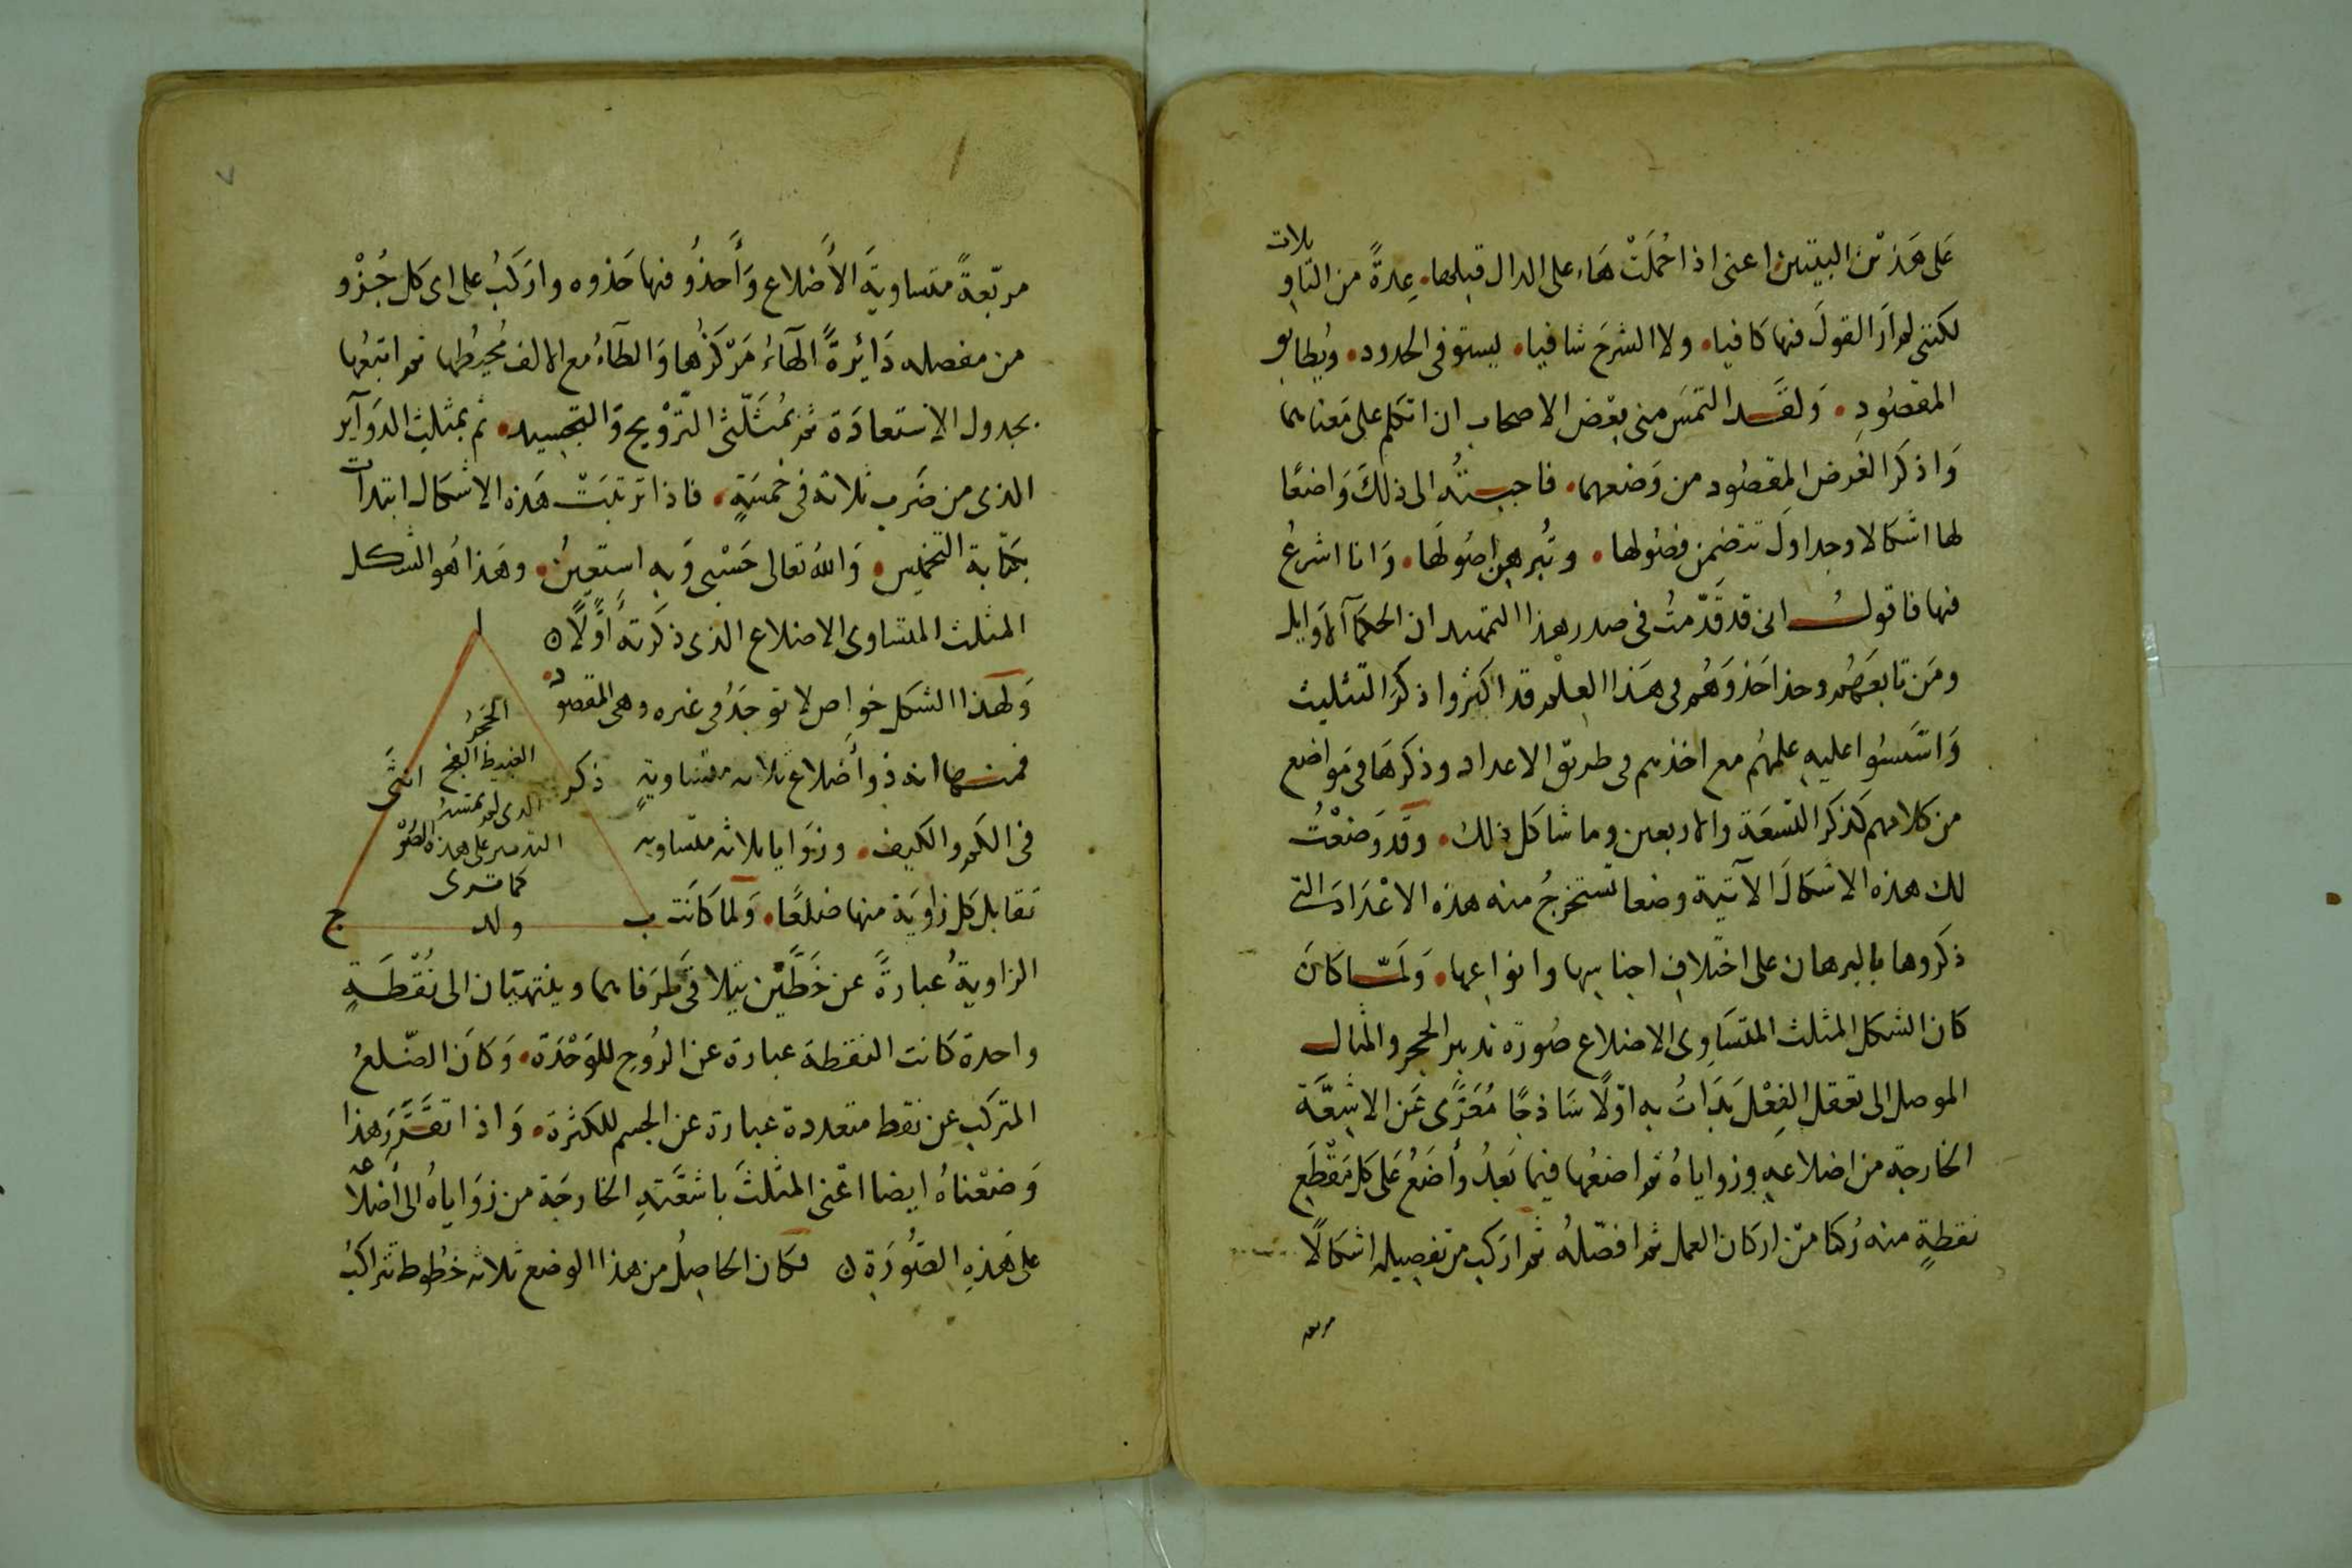 على هَذيْن البيتين اعنى اذا حُمَلَتْ هَاء على الدال قبلها. عِدةً من التاويلات
لكننى لم ارَ القولَ فيها كافيا. ولا الشرحَ شافيا. يستوفى الحدود. ويُطابق
المقصُودِ. وَلقَد التمسَ منى بعْض الاصحاب ان اتكلم على مَعناهما
وَاذكرَ الغرض المقصُود من وَضعهما. فاجبتُه الى ذلكَ وَاضعًا
لها اشكالا وجداولَ تتضمن فصُولها. وتُبرهن اصُولَها. وَانا اشرعُ
فيها فاقولُ انى قد قَدّمتُ فى صدر هذا التمهيد ان الحكمآ الاوَايل
ومَن تابعَهُم وحذا حَذوَهُم فى هَذا العِلْم قد اكثروا ذكرَ التثليث
وَاسَّسُوا عليهِ علمهُم مع اخذهم فى طريق الاعداد وذكرهَا فى مَواضع
من كلامهم كذكر التسعَة والاربعين وما شاكل ذلك. وقد وَضعْتُ
لك هذه الاشكالَ الآتية وضعا تستخرجُ منه هذه الاعْدَادَ التى
ذكَروها بالبرهان على اختلاف اجناسِها وانواعها. وَلمّا كانَ
كان الشكل المثلث المتسَاوِى الاضلاع صُورَة تدبير الحجر والمثال
الموصل الى تعقل الفِعْل بَدَاتُ به اوّلًا سَاذجًا مُعَرًّى عَن الاشِعَّة
الخارجة من اضلاعهِ وزواياهُ ثم اضعُها فيما بَعدُ وأضَعُ عَلى كل مَقْطَعِ
نقطةٍ منه رُكنا مّن اركان العمل ثم افصّلهُ ثم اركب من تفصيله اشكالًا
مربعه
٧
مربّعةً متساويَةَ الأضلاع وَأحذُو فيها حَذوه واركَبُ على اى كل جُزْو
من مفصله دَائِرةً الهَآءُ مَرْكزُها وَالطآءُ مع الالف مُحيطُها ثم اتبعُها
بجدول الاستعادَة ثم بمُثَلّثى التّزْويج وَالتجسيد. ثم بمثلث الدوَآير
الذى من ضَربِ ثلاثة فى خمسَةٍ. فاذا ترتبَتْ هَذه الاشكال ابتدات
بكتابة التخميس. وَالله تعالى حَسْبى وَبه استعِينُ. وهَذا هُو الشكل
المثلث المتساوى الاضلاع الذى ذكرته أوّلًا ن
وَلهَذا الشكل خواص لا توجَدُ فى غيره وهى المقصود
فمنها انه ذو أضلاع ثلاثه متساويةٍ
فى الكم والكيف. وزوَايا ثلاثه متساويه
تقابل كل زاويَة منها ضلعًا. وَلما كانَت
الزاويةُ عبارةً عن خَطَّيْن يتلاقى طرَفاهما وينتهيَان الى نُقْطَةٍ
واحدة كانت النقطة عبارة عن الرُوحِ للوَحْدَة. وَكانَ الضّلعُ
المتركب عن نقط متعددة عبارة عن الجسم للكثرَة. وَاذا تقرَّرَ هذا
وَضعْناهُ ايضا اعْنى المثلثَ باشعَّتهِ الخارجَة من زوَاياهُ الى أضلاعه
على هَذهِ الصُّورَة ن فكان الحَاصِلُ من هذا الوضع ثلاثه خُطوط تتراكبُ
ا
الحَجَرُ
الغبيط الفج
الذى لم تمسسهُ
التدبير على هذه الصُّو
كما ترى
ذكر
انثَى
ب
ولد
ج